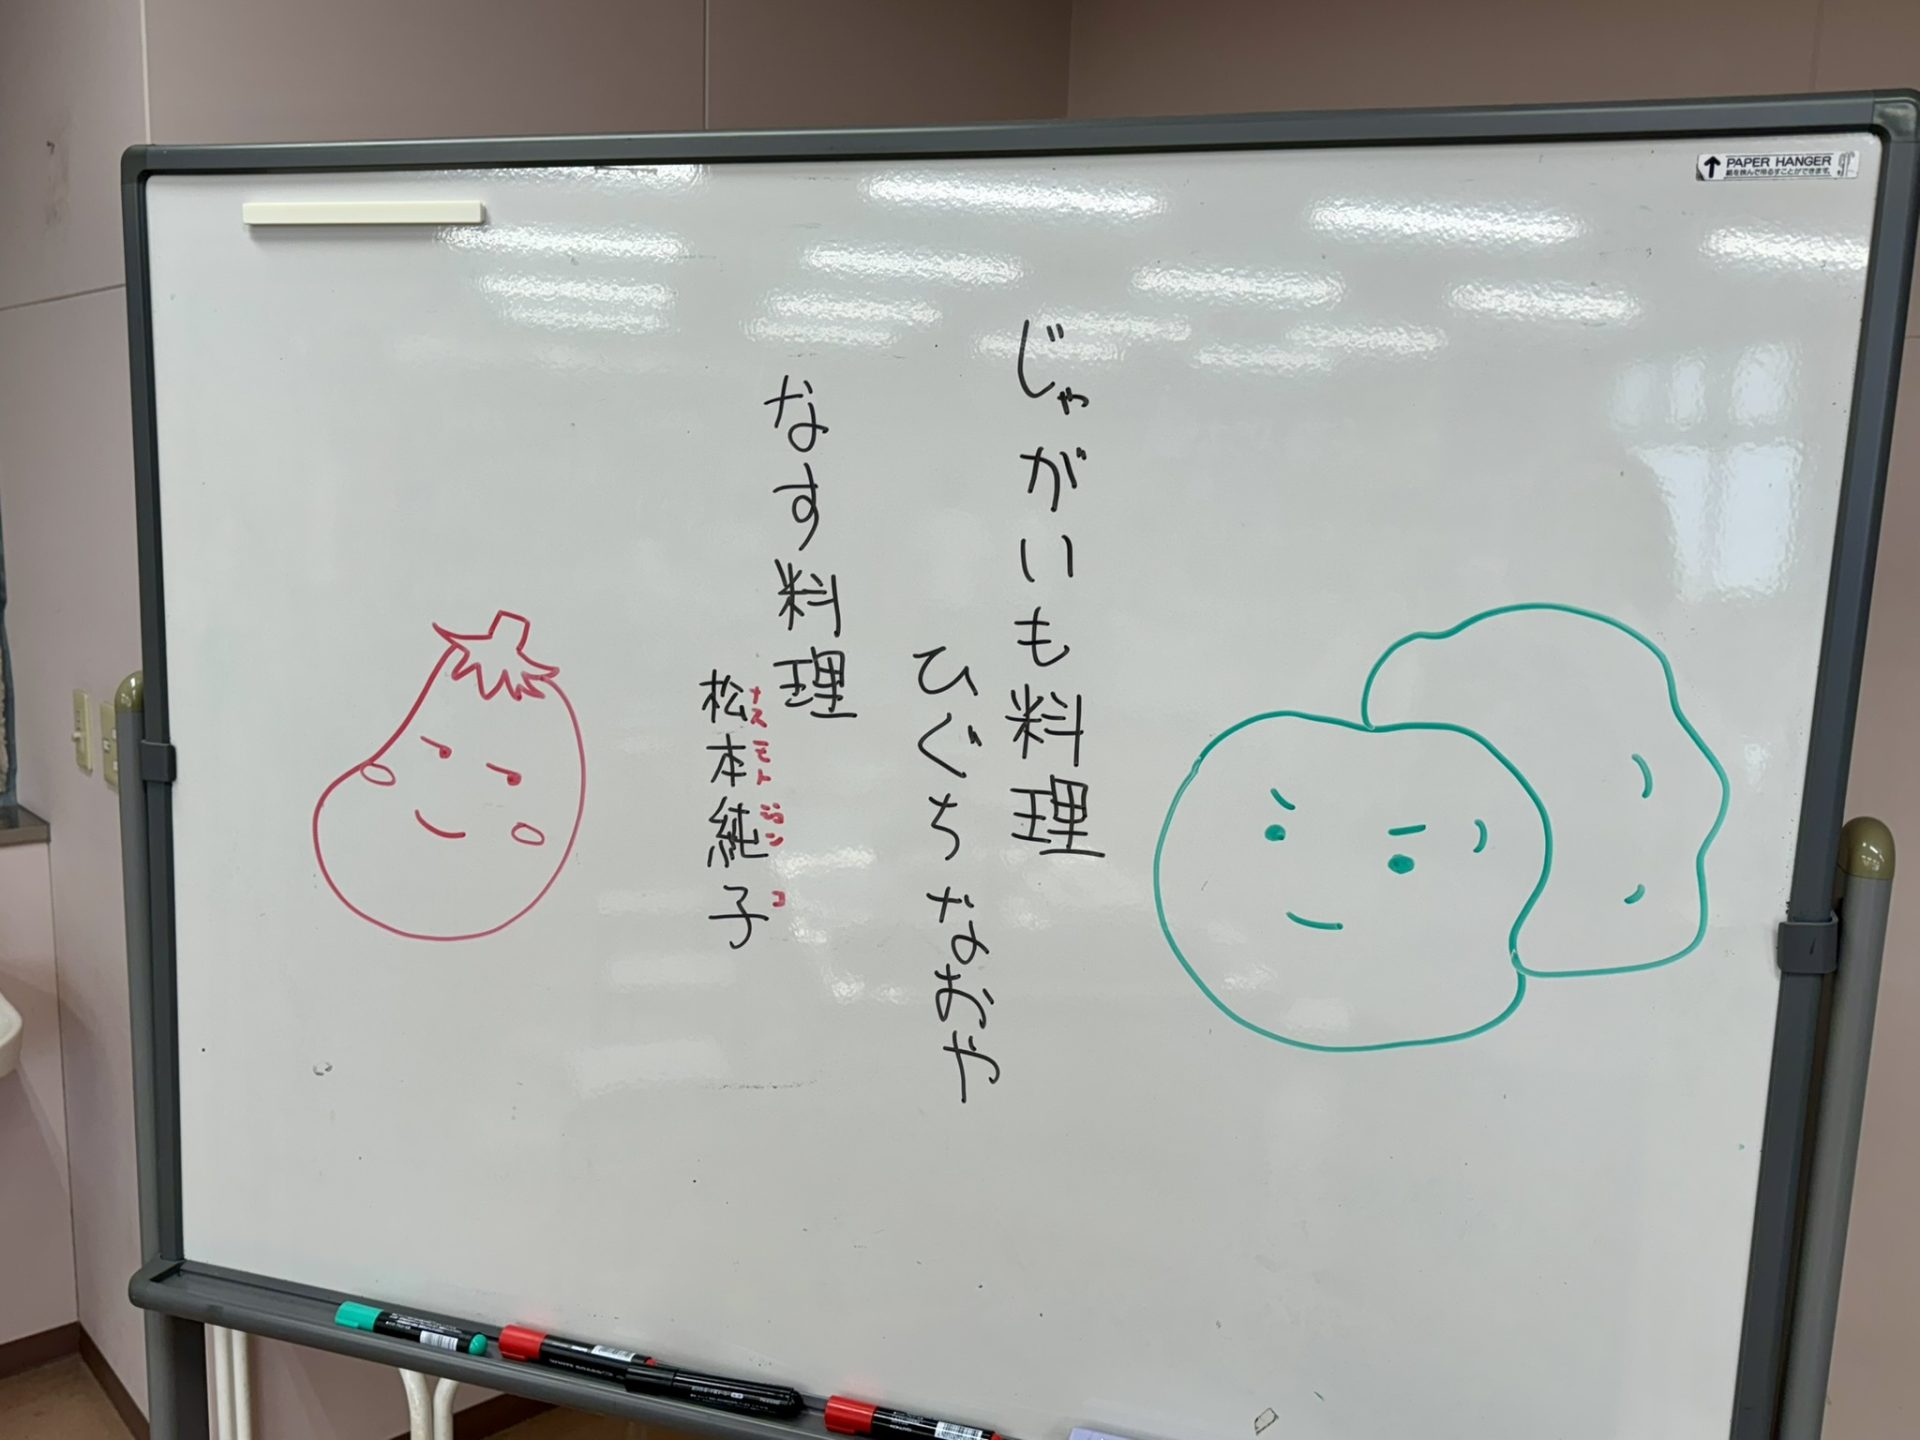 じゃがいも料理
ひぐちなおや
なす料理
松本純子
ナスモトジュンコ
PAPER HANGER
紙を挟んで吊るすことができます。